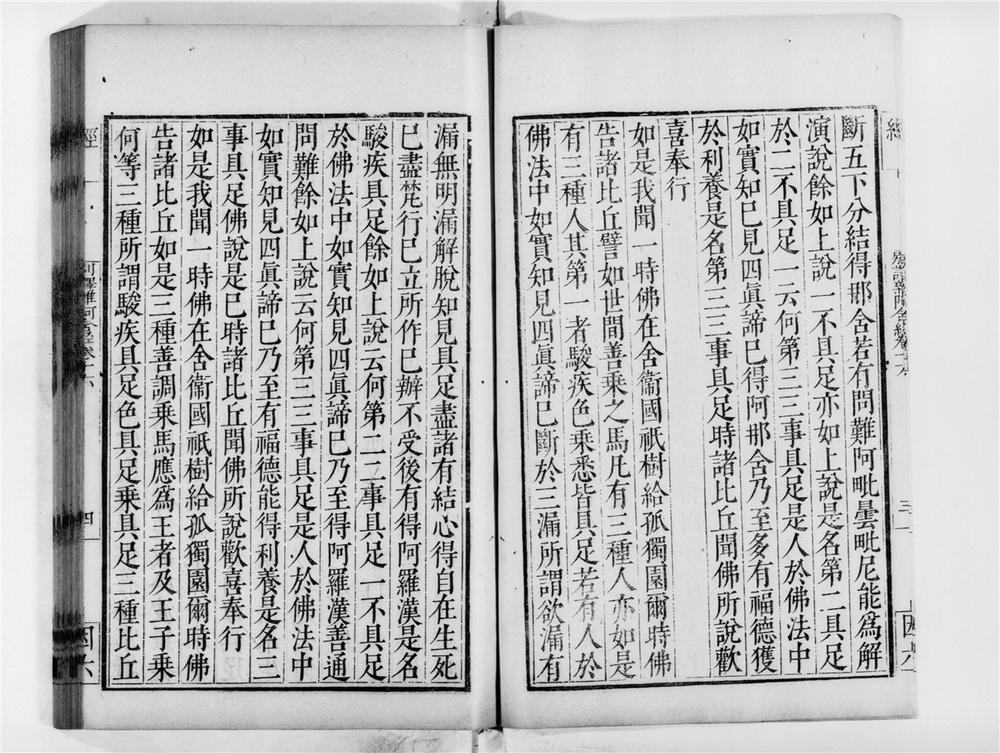 斷五下分結得那舍若有問難阿毗曇毗尼能爲解
演說餘如上說一不具足亦如上說是名第二具足
於二不具足一云何第三三事具足是人於佛法中
如實知已見四眞諦已得阿那舍乃至多有福德獲
於利養是名第三三事具足時諸比丘聞佛所說歡
喜奉行
如是我聞一時佛在舍衞國祇樹給孤獨園爾時佛
告諸比丘譬如世間善乘之馬凡有三種人亦如是
有三種人其第一者駿疾色乘悉皆具足若有人於
佛法中如實知見四眞諦已斷於三漏所謂欲漏有
漏無明漏解脫知見具足盡諸有結心得自在生死
已盡梵行已立所作已辦不受後有得阿羅漢是名
駿疾具足餘如上說云何第二二事具足一不具足
於佛法中如實知見四眞諦已乃至得阿羅漢善通
問難餘如上說云何第三三事具足是人於佛法中
如實知見四眞諦已乃至有福德能得利養是名三
事具足佛說是已時諸比丘聞佛所說歡喜奉行
如是我聞一時佛在舍衞國祇樹給孤獨園爾時佛
告諸比丘如是三種善調乘馬應爲王者及王子乘
何等三種所謂駿疾具足色具足乘具足三種比丘
經
四